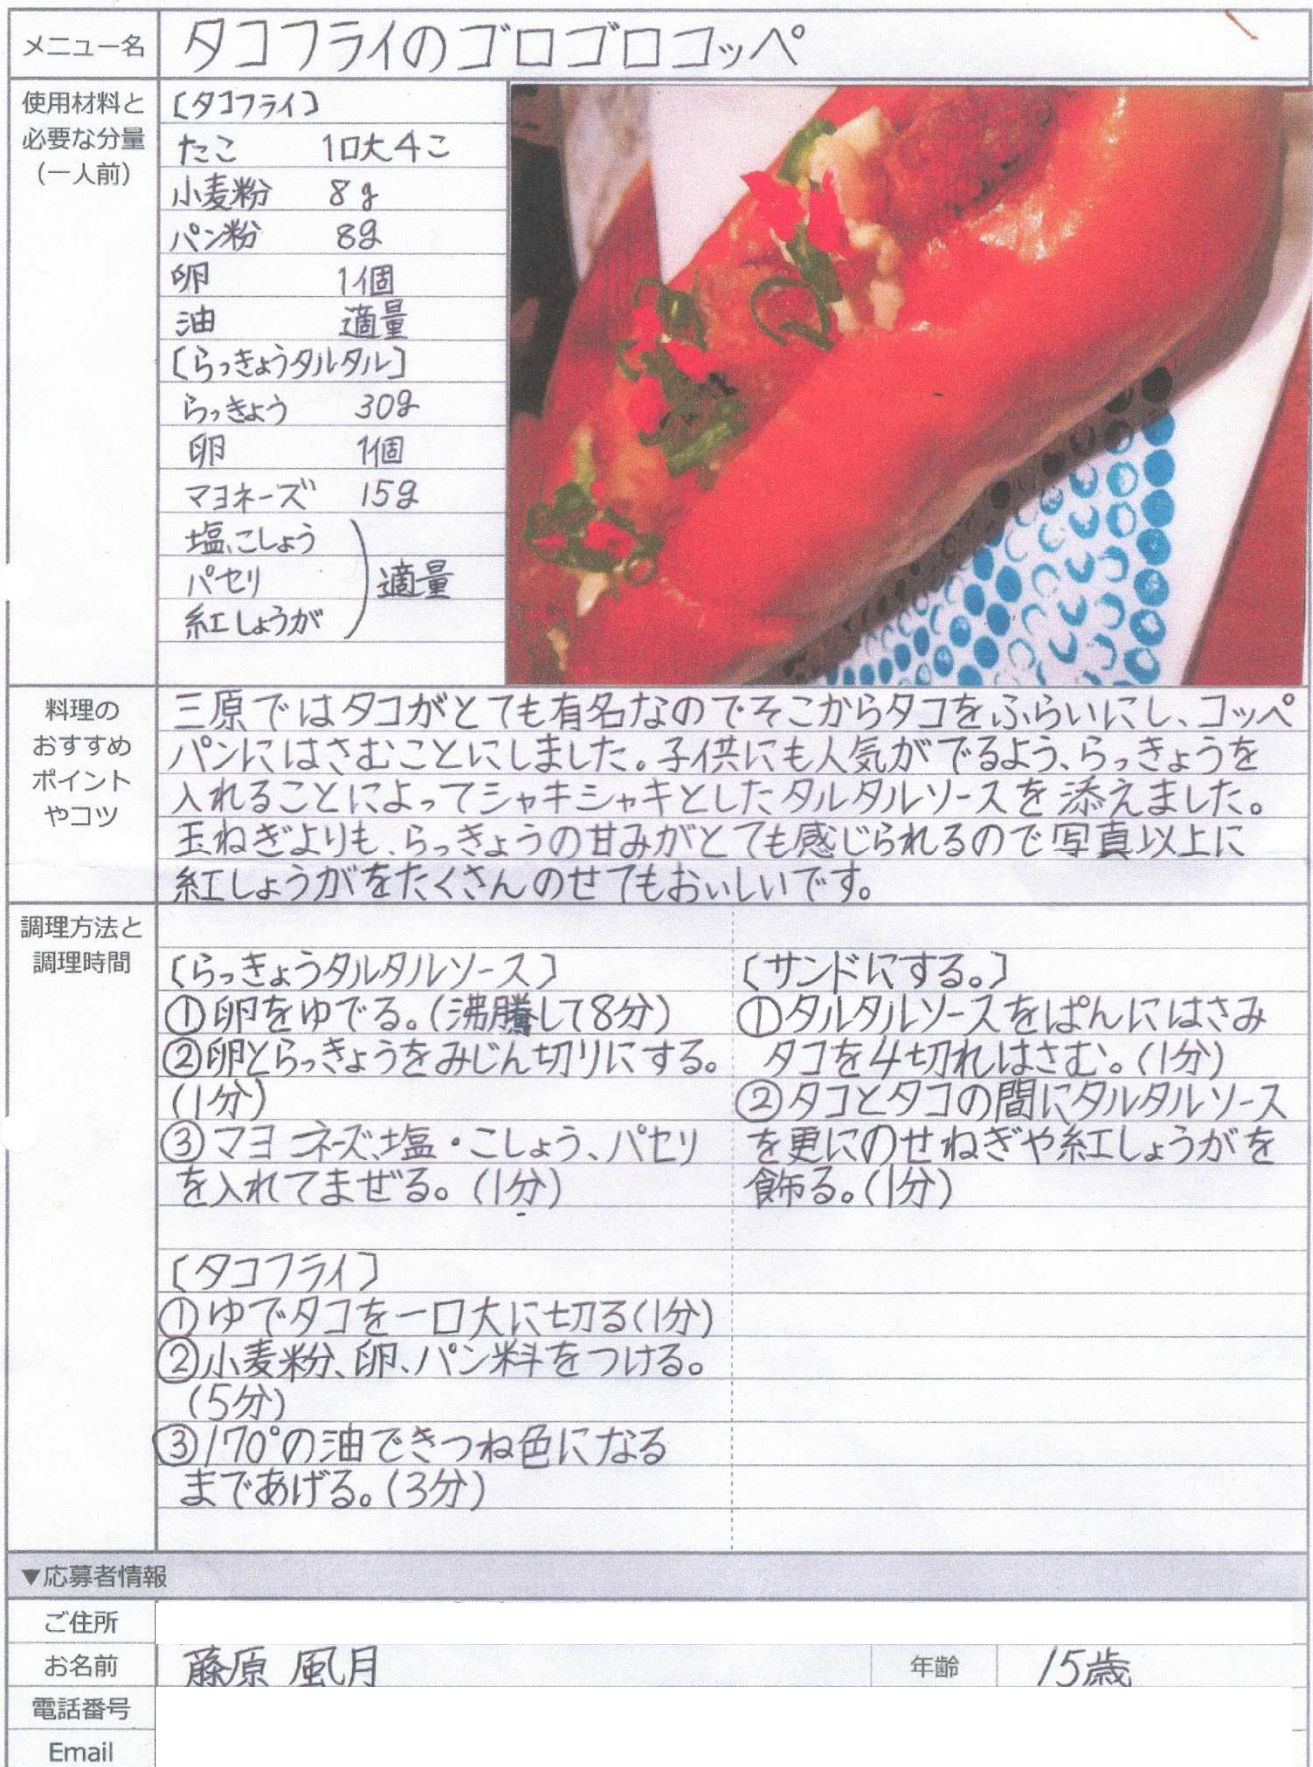 メニュー名 タコフライのゴロゴロコッペ
使用材料と
必要な分量
(一人前)
〔タコフライ〕
たこ 1口大4こ
小麦粉 8g
パン粉 8g
卵 1個
油 適量
〔らっきょうタルタル〕
らっきょう 30g
卵 1個
マヨネーズ 15g
塩、こしょう
パセリ 適量
紅しょうが
料理の
おすすめ
ポイント
やコツ
三原ではタコがとても有名なのでそこからタコをふらいにし、コッペ
パンにはさむことにしました。子供にも人気がでるよう、らっきょうを
入れることによってシャキシャキとしたタルタルソースを添えました。
玉ねぎよりも、らっきょうの甘みがとても感じられるので写真以上に
紅しょうがをたくさんのせてもおいしいです。
調理方法と
調理時間
〔らっきょうタルタルソース〕
①卵をゆでる。(沸騰して8分)
②卵とらっきょうをみじん切りにする。
(1分)
③マヨネーズ、塩・こしょう、パセリ
を入れてまぜる。(1分)
〔タコフライ〕
①ゆでタコを一口大に切る(1分)
②小麦粉、卵、パン料をつける。
(5分)
③170°の油できつね色になる
まであげる。(3分)
〔サンドにする。〕
①タルタルソースをぱんにはさみ
タコを4切れはさむ。(1分)
②タコとタコの間にタルタルソース
を更にのせねぎや紅しょうがを
飾る。(1分)
▼応募者情報
ご住所
お名前 藤原 風月 年齢 15歳
電話番号
Email